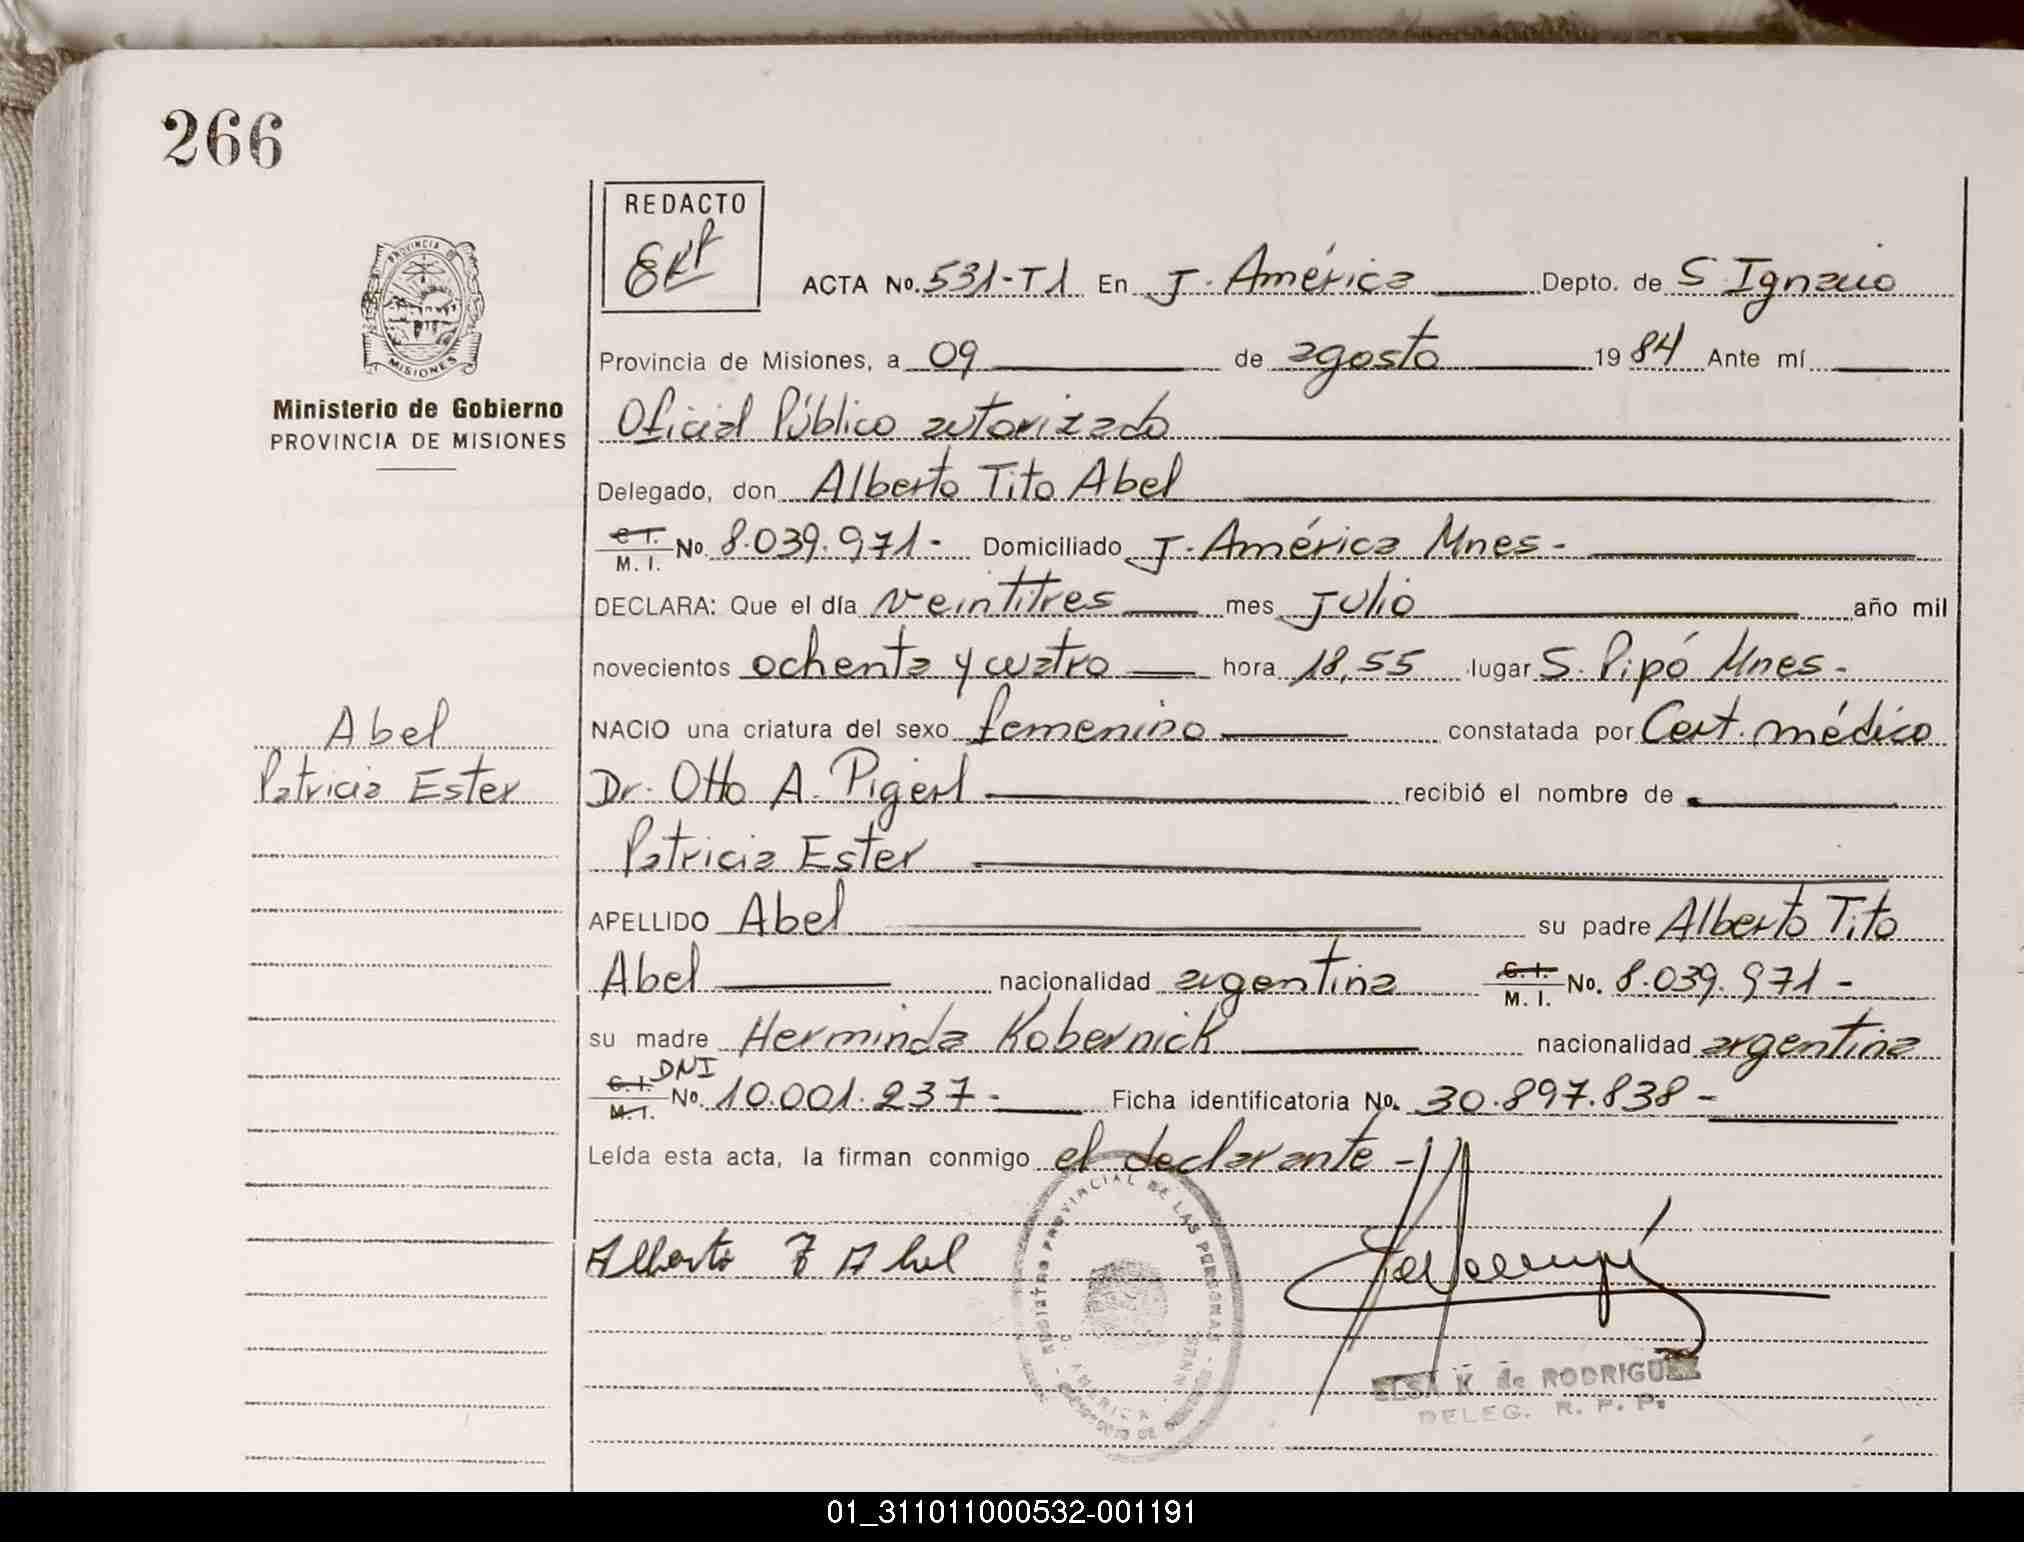 266
REDACTO
PROVINCIA DE
MISIONES
Ministerio de Gobierno
PROVINCIA DE MISIONES
ACTA No. 531-T1 En J. América Depto. de S. Ignacio
Provincia de Misiones, a 09 de agosto 1984 Ante mí
Oficial Público autorizado
Delegado, don Alberto Tito Abel
C. I.
M. I. No. 8.039.971- Domiciliado J. América Mnes-
DECLARA: Que el día veintitres mes Julio año mil
novecientos ochenta y cuatro hora 18,55 lugar S. Pipó Mnes-
NACIO una criatura del sexo femenino constatada por Cert. médico
Dr. Otto A. Pigerl recibió el nombre de
Patricia Ester
APELLIDO Abel su padre Alberto Tito
Abel nacionalidad argentina C. I. M. I. No. 8.039.971-
su madre Herminda Kobernick nacionalidad argentina
C. I. M. I. DNI No. 10.001.237- Ficha identificatoria No. 30.897.838-
Leída esta acta, la firman conmigo el declarante-
Abel
Patricia Ester
Alberto T Abel
REGISTRO PROVINCIAL DE LAS PERSONAS
AMERICA
ELSA K de RODRIGUEZ
DELEG. R. P. P.
01_311011000532-001191